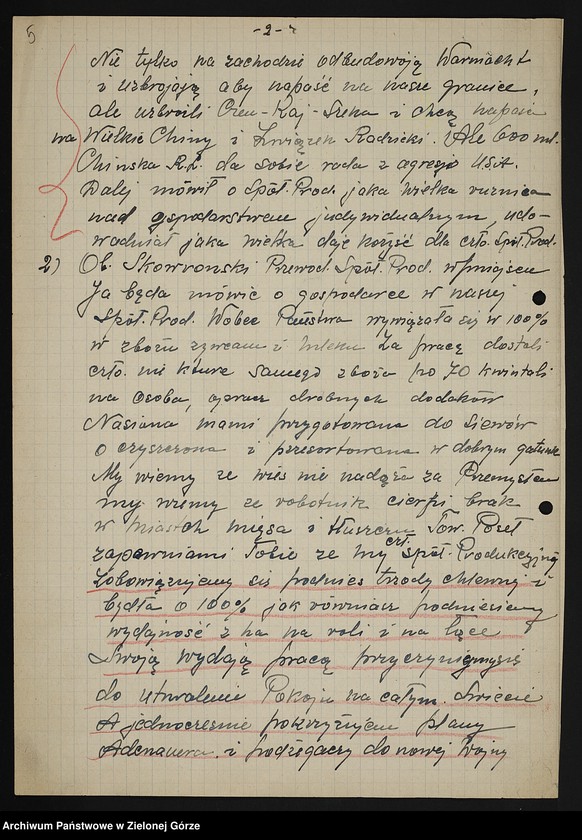 5
-2-
Nie tylko na zachodzie odbudowują Warmacht
i uzbrojają aby napaść na nasze granice,
ale uzbroili Czeu-Kaj-Sieka i chcą napaść
na Wielkie Chiny i Związek Radziecki. Ale 600 ml.
Chinska R.L. da sobie rada z agresją USA.
Dalej mówił o Spół. Prod. jaka wielka
nad gospodarstwem indywidualnym, udo-
wodniał jaka wielka daje kożyść dla czło. Spół. Prod.
2) Ob. Skowronski Przewod. Spół. Prod. w
Ja będa mówić o gospodarce w naszej
Spół. Prod. Wobec Państwa wywiązała się w 100%
w zbożu żywcam i mleku za pracę dostali
czło. nie które samego zboża po 70 kwintali
na osoba, oprucz dróbnych dodaków
Nasiona mami przygotowane do siewów
o czyszczona i przesortowana w dobrym gatunk
My wiemy ze wieś nie nadąża za Przemysłem
my wiemy ze robotnik cierpi brak
w miastach mięsa i tłuszczu Tow. Poseł
zapewniami Tobie ze my czł. Spół. Produkcyjnej
Zobowiązujemy się podnieś trzody chlewnej i
bydła o 100% jak równiasz podniesiemy
wydajność z ha na roli i na łące
Swoją wydają pracą przyczyniemysię
do utrwalenie Pokoju na całym Swiecie
A jednocześnie pokrzyżujem plany
Adenauera i podżegaczy do nowej Wojny
Archiwum Państwowe w Zielonej Górze